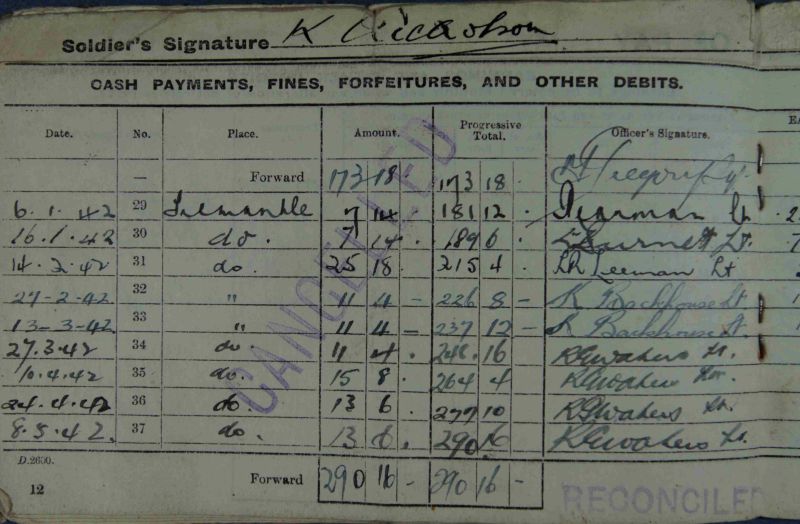 Soldier's Signature K Nicholson
CASH PAYMENTS, FINES, FORFEITURES, AND OTHER DEBITS.
Date. No. Place. Amount. Progressive Total. Officer's Signature.
— Forward 173 18 . 173 18 .
6.1.42 29 Fremantle 7 14 . 181 12 . Lt
16.1.42 30 do. 7 14 . 189 6 Lt.
14.2.42 31 do. 25 18 . 215 4 Leeman Lt
27-2-42 32 " 11 4 — 226 8 — K Backhouse Lt
13-3-42 33 " 11 4 — 237 12 — K Backhouse Lt.
27.3.42 34 do. 11 4 . 248 16 KGWaters Lt.
10.4.42 35 do. 15 8 . 264 4 KGWaters Lt.
24.4.42 36 do. 13 6 . 277 10 KGWaters Lt.
8.5.42. 37 do. 13 6 . 290 16 KGWaters Lt.
CANCELLED
D.2600.
Forward 290 16 — 290 16 —
12
RECONCILED